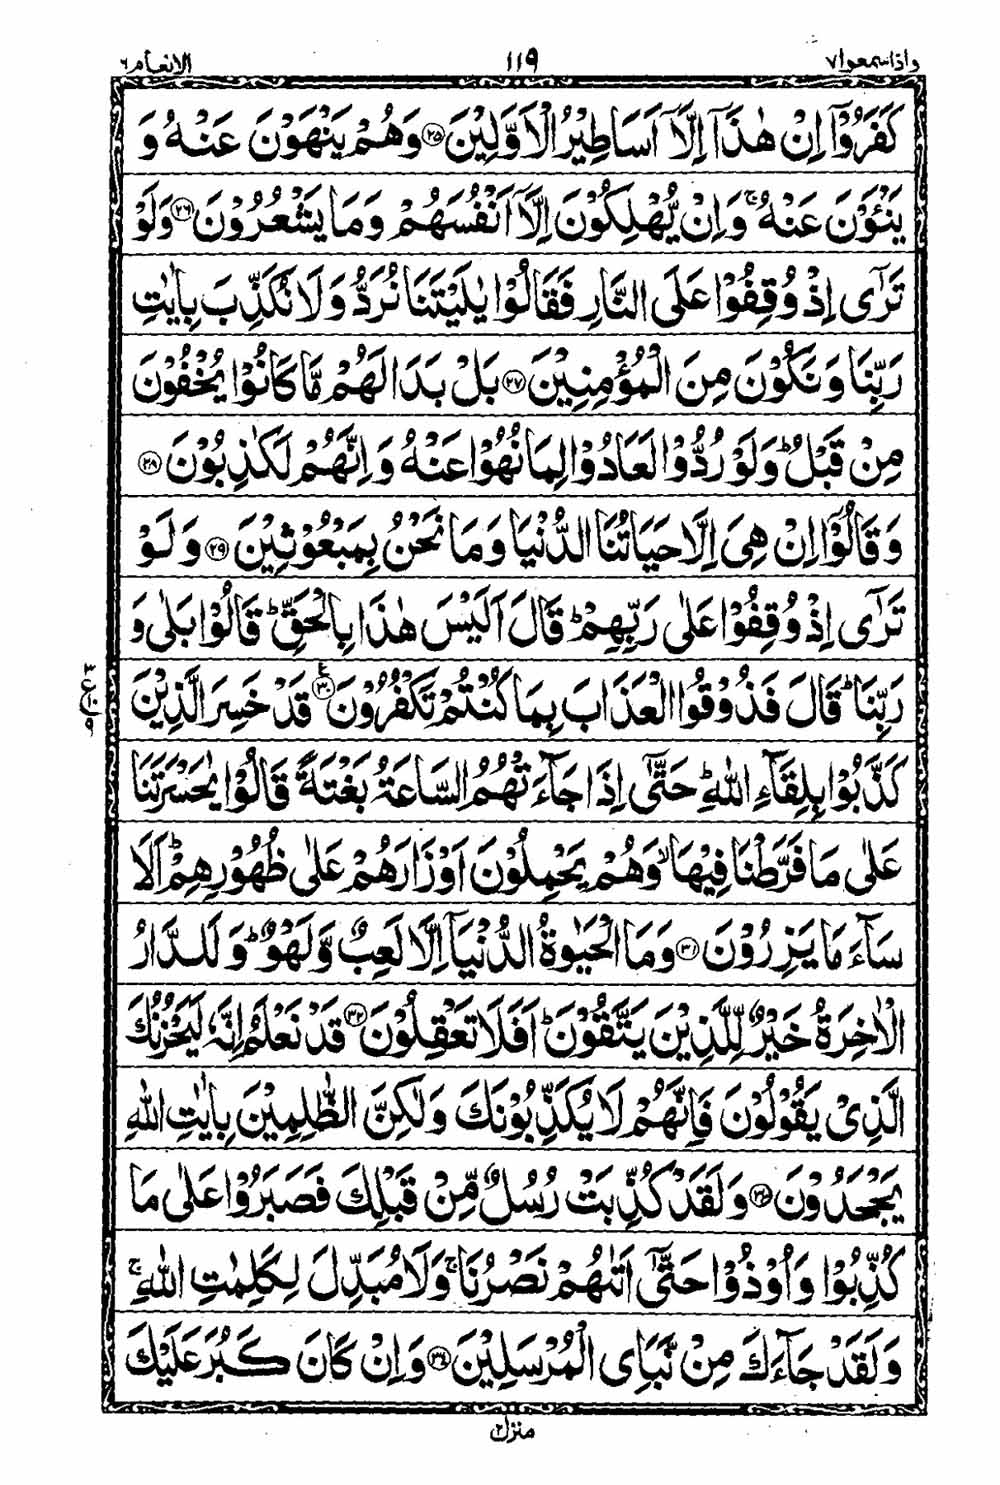 واذاسمعوا ٧ ١١٩ الانعام ٦
كَفَرُوْۤا اِنْ هٰذَاۤ اِلَّاۤ اَسَاطِيْرُ الْاَوَّلِيْنَ ﴿٢٥﴾ وَهُمْ يَنْهَوْنَ عَنْهُ وَ
يَنْـَٔوْنَ عَنْهُ ۚ وَاِنْ يُّهْلِكُوْنَ اِلَّاۤ اَنْفُسَهُمْ وَمَا يَشْعُرُوْنَ ﴿٢٦﴾ وَلَوْ
تَرٰۤى اِذْ وُقِفُوْا عَلَى النَّارِ فَقَالُوْا يٰلَيْتَنَا نُرَدُّ وَلَا نُكَذِّبَ بِاٰيٰتِ
رَبِّنَا وَنَكُوْنَ مِنَ الْمُؤْمِنِيْنَ ﴿٢٧﴾ بَلْ بَدَا لَهُمْ مَّا كَانُوْا يُخْفُوْنَ
مِنْ قَبْلُ ؕ وَلَوْ رُدُّوْا لَعَادُوْا لِمَا نُهُوْا عَنْهُ وَاِنَّهُمْ لَكٰذِبُوْنَ ﴿٢٨﴾
وَقَالُوْۤا اِنْ هِىَ اِلَّا حَيَاتُنَا الدُّنْيَا وَمَا نَحْنُ بِمَبْعُوْثِيْنَ ﴿٢٩﴾ وَلَوْ
تَرٰۤى اِذْ وُقِفُوْا عَلٰى رَبِّهِمْ ؕ قَالَ اَلَيْسَ هٰذَا بِالْحَقِّ ؕ قَالُوْا بَلٰى وَ
رَبِّنَا ؕ قَالَ فَذُوْقُوا الْعَذَابَ بِمَا كُنْتُمْ تَكْفُرُوْنَ ﴿٣٠﴾ قَدْ خَسِرَ الَّذِيْنَ
كَذَّبُوْا بِلِقَآءِ اللّٰهِ ؕ حَتّٰۤى اِذَا جَآءَتْهُمُ السَّاعَةُ بَغْتَةً قَالُوْا يٰحَسْرَتَنَا
عَلٰى مَا فَرَّطْنَا فِيْهَا ۙ وَهُمْ يَحْمِلُوْنَ اَوْزَارَهُمْ عَلٰى ظُهُوْرِهِمْ ؕ اَلَا
سَآءَ مَا يَزِرُوْنَ ﴿٣١﴾ وَمَا الْحَيٰوةُ الدُّنْيَاۤ اِلَّا لَعِبٌ وَّلَهْوٌ ؕ وَلَلدَّارُ
الْاٰخِرَةُ خَيْرٌ لِّلَّذِيْنَ يَتَّقُوْنَ ؕ اَفَلَا تَعْقِلُوْنَ ﴿٣٢﴾ قَدْ نَعْلَمُ اِنَّهٗ لَيَحْزُنُكَ
الَّذِىْ يَقُوْلُوْنَ فَاِنَّهُمْ لَا يُكَذِّبُوْنَكَ وَلٰكِنَّ الظّٰلِمِيْنَ بِاٰيٰتِ اللّٰهِ
يَجْحَدُوْنَ ﴿٣٣﴾ وَلَقَدْ كُذِّبَتْ رُسُلٌ مِّنْ قَبْلِكَ فَصَبَرُوْا عَلٰى مَا
كُذِّبُوْا وَاُوْذُوْا حَتّٰۤى اَتٰىهُمْ نَصْرُنَا ۚ وَلَا مُبَدِّلَ لِكَلِمٰتِ اللّٰهِ ۚ
وَلَقَدْ جَآءَكَ مِنْ نَّبَاِى الْمُرْسَلِيْنَ ﴿٣٤﴾ وَاِنْ كَانَ كَبُرَ عَلَيْكَ
منزل ٢